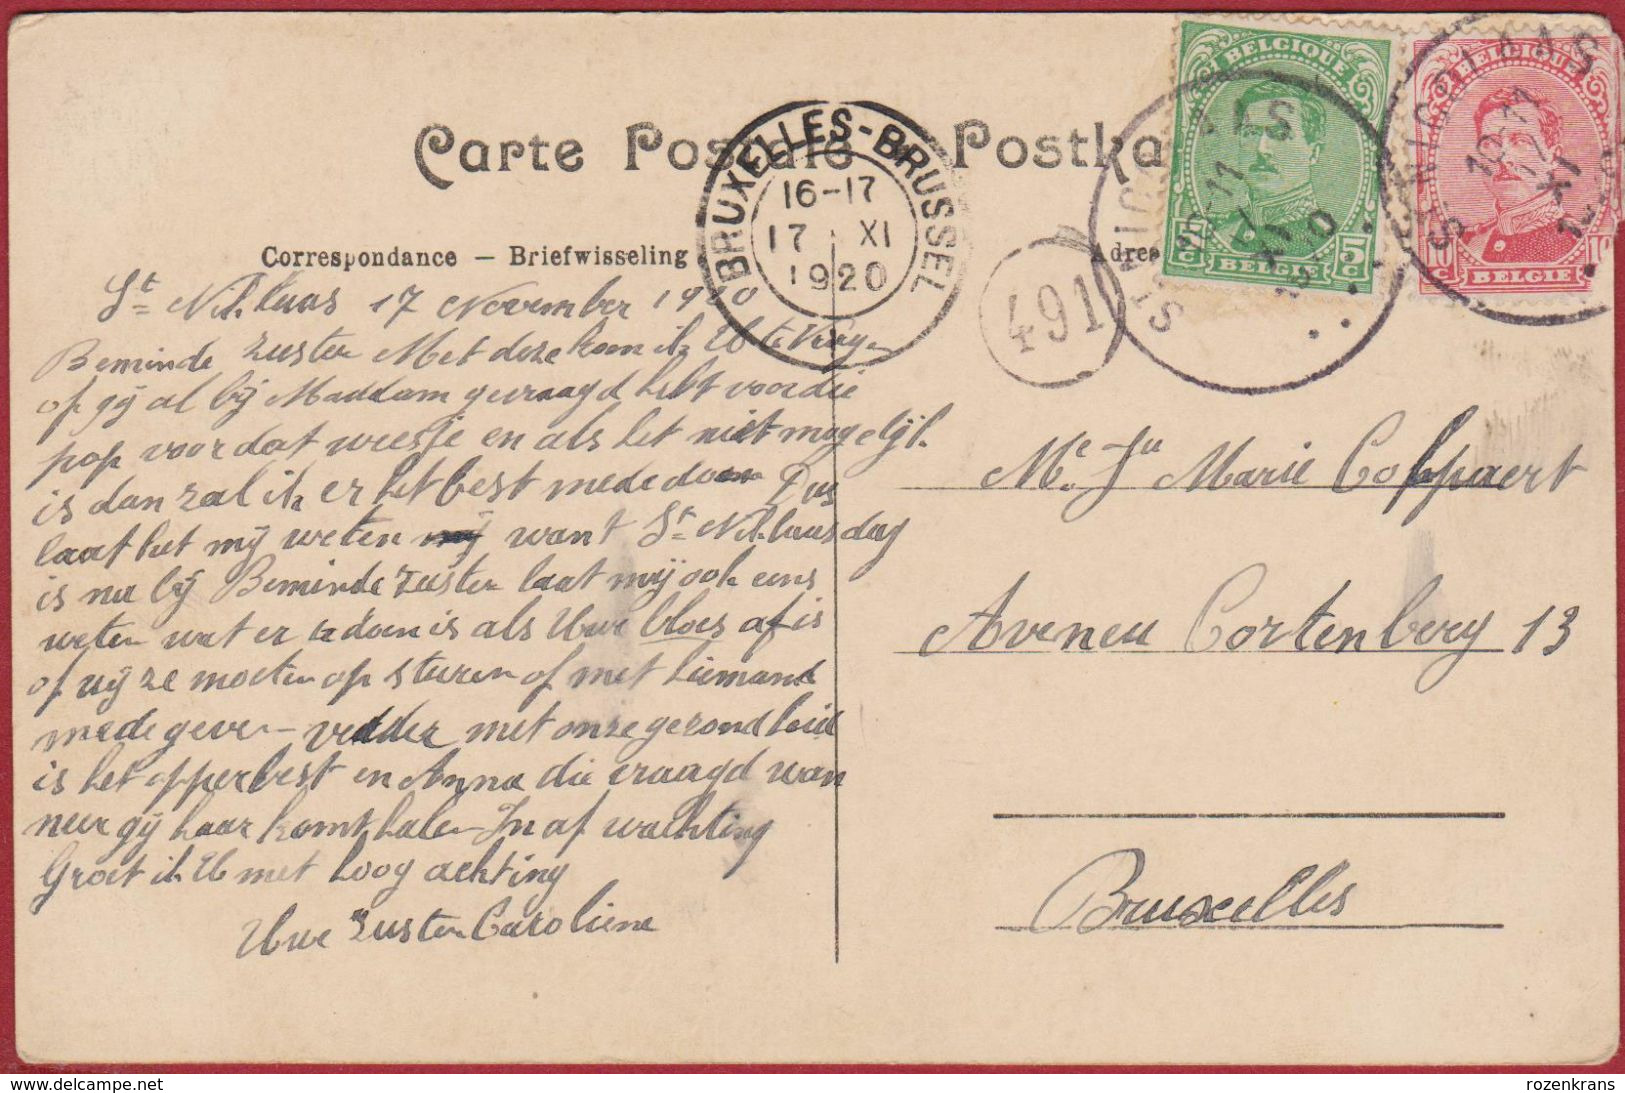 Carte Postale — Postka
BRUXELLES-BRUSSEL
16-17
17 XI
1920
BELGIQUE
5 C 5 C
BELGIË
BELGIQUE
10 C 10 C
BELGIE
ST NICOLAAS
10-11
17 XI
ST NICOLAAS
491
Correspondance — Briefwisseling
Adres
St Niklaas 17 November 1920
Beminde zuster Met deze kom ik U te Vrag-
op gij al bij Maddam gevraagd hebt voor die
pop voor dat weesje en als het niet mogelijk
is dan zal ik er het best mede doen Dus
laat het mij weten want St Niklaasdag
is nu bij Beminde zuster laat mij ook eens
weten wat er te doen is als Uwe bloes af is
of wij ze moeten op sturen of met iemand
mede geven verder met onze gezondheid
is het opperbest en Anna die vraagd wan
neer gij haar komt halen In af wachting
Groet ik U met hoog achting
Uwe Zuster Caroliene
Me Ju Marie Colppaert
Aveneu Cortenberg 13
Bruxelles
rozenkrans